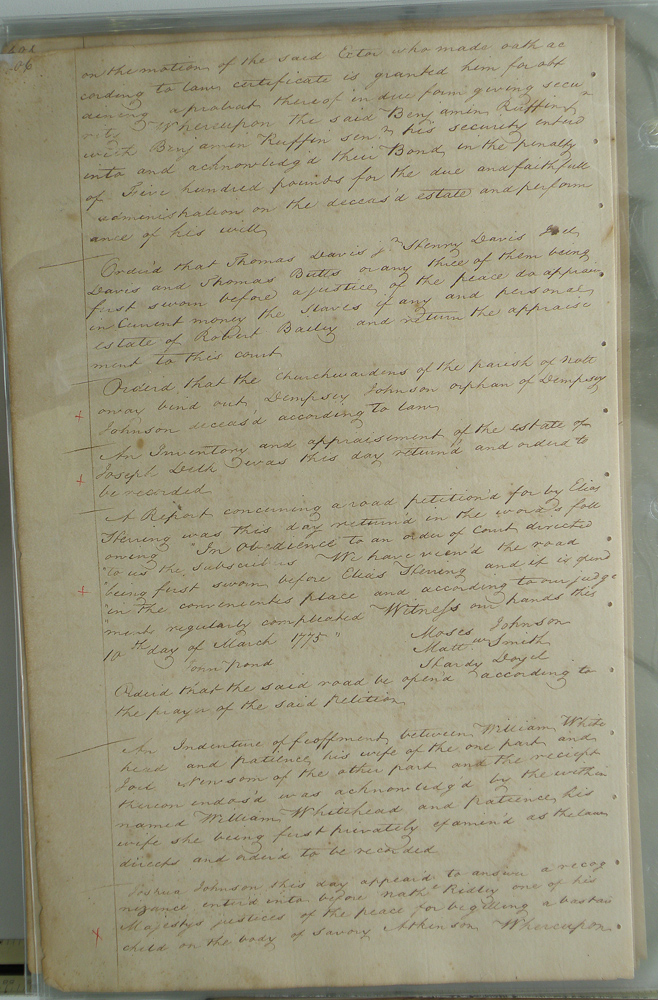 on the motion of the said Extor who made oath ac
cording to law certificate is granted him for obt
aining a probat thereof in due form giving secu
rity Whereupon the said Benjamin Ruffin
with Benjamin Ruffin senr his security enterd
into and acknowledg'd their Bond in the penalty
of Five hundred pounds for the due and faithfull
administration on the deceas'd estate and perform
ance of his will
Order'd that Thomas Davis jr Henry Davis Joel
Davis and Thomas Butts or any three of them being
first sworn before a justice of the peace do apprais
in Current money the Slaves if any and personal
estate of Robert Bailey and return the appraise
ment to this court
Orderd that the Churchwardens of the parish of Nott
oway bind out Dempsey Johnson orphan of Dempsey
Johnson deceas'd according to law
An Inventory and appraisement of the estate of
Joseph Delk was this day return'd and orderd to
be recorded
A Report concerning a road petition'd for by Elias
Herring was this day return'd in the words foll
owing "In Obedience to an order of Court directed
"to us the Subscribers We have view'd the road
"being first sworn before Elias Herring and it is opend
"in the convenientes place and according to our judge
"ment regularly compleated Witness our hands this
10th day of March 1775"
Moses Johnson
Matt w Smith
John Pond
Hardy Doyel
Orderd that the said road be open'd according to
the prayer of the said Petition
An Indenture of feoffment between William White
head and Patience his wife of the one part and
Joel Newsom of the other part and the reciept
thereon endors'd was acknowledg'd by the within
named William Whitehead and Patience his
wife she being first privately examin'd as the law
directs and order'd to be recorded
Joshua Johnson this day appeard to answer a recog
nizance enter'd into before Nathl Ridley one of his
Majestys justices of the peace for begetting a bastar
child on the body of Savory Atkinson Whereupon